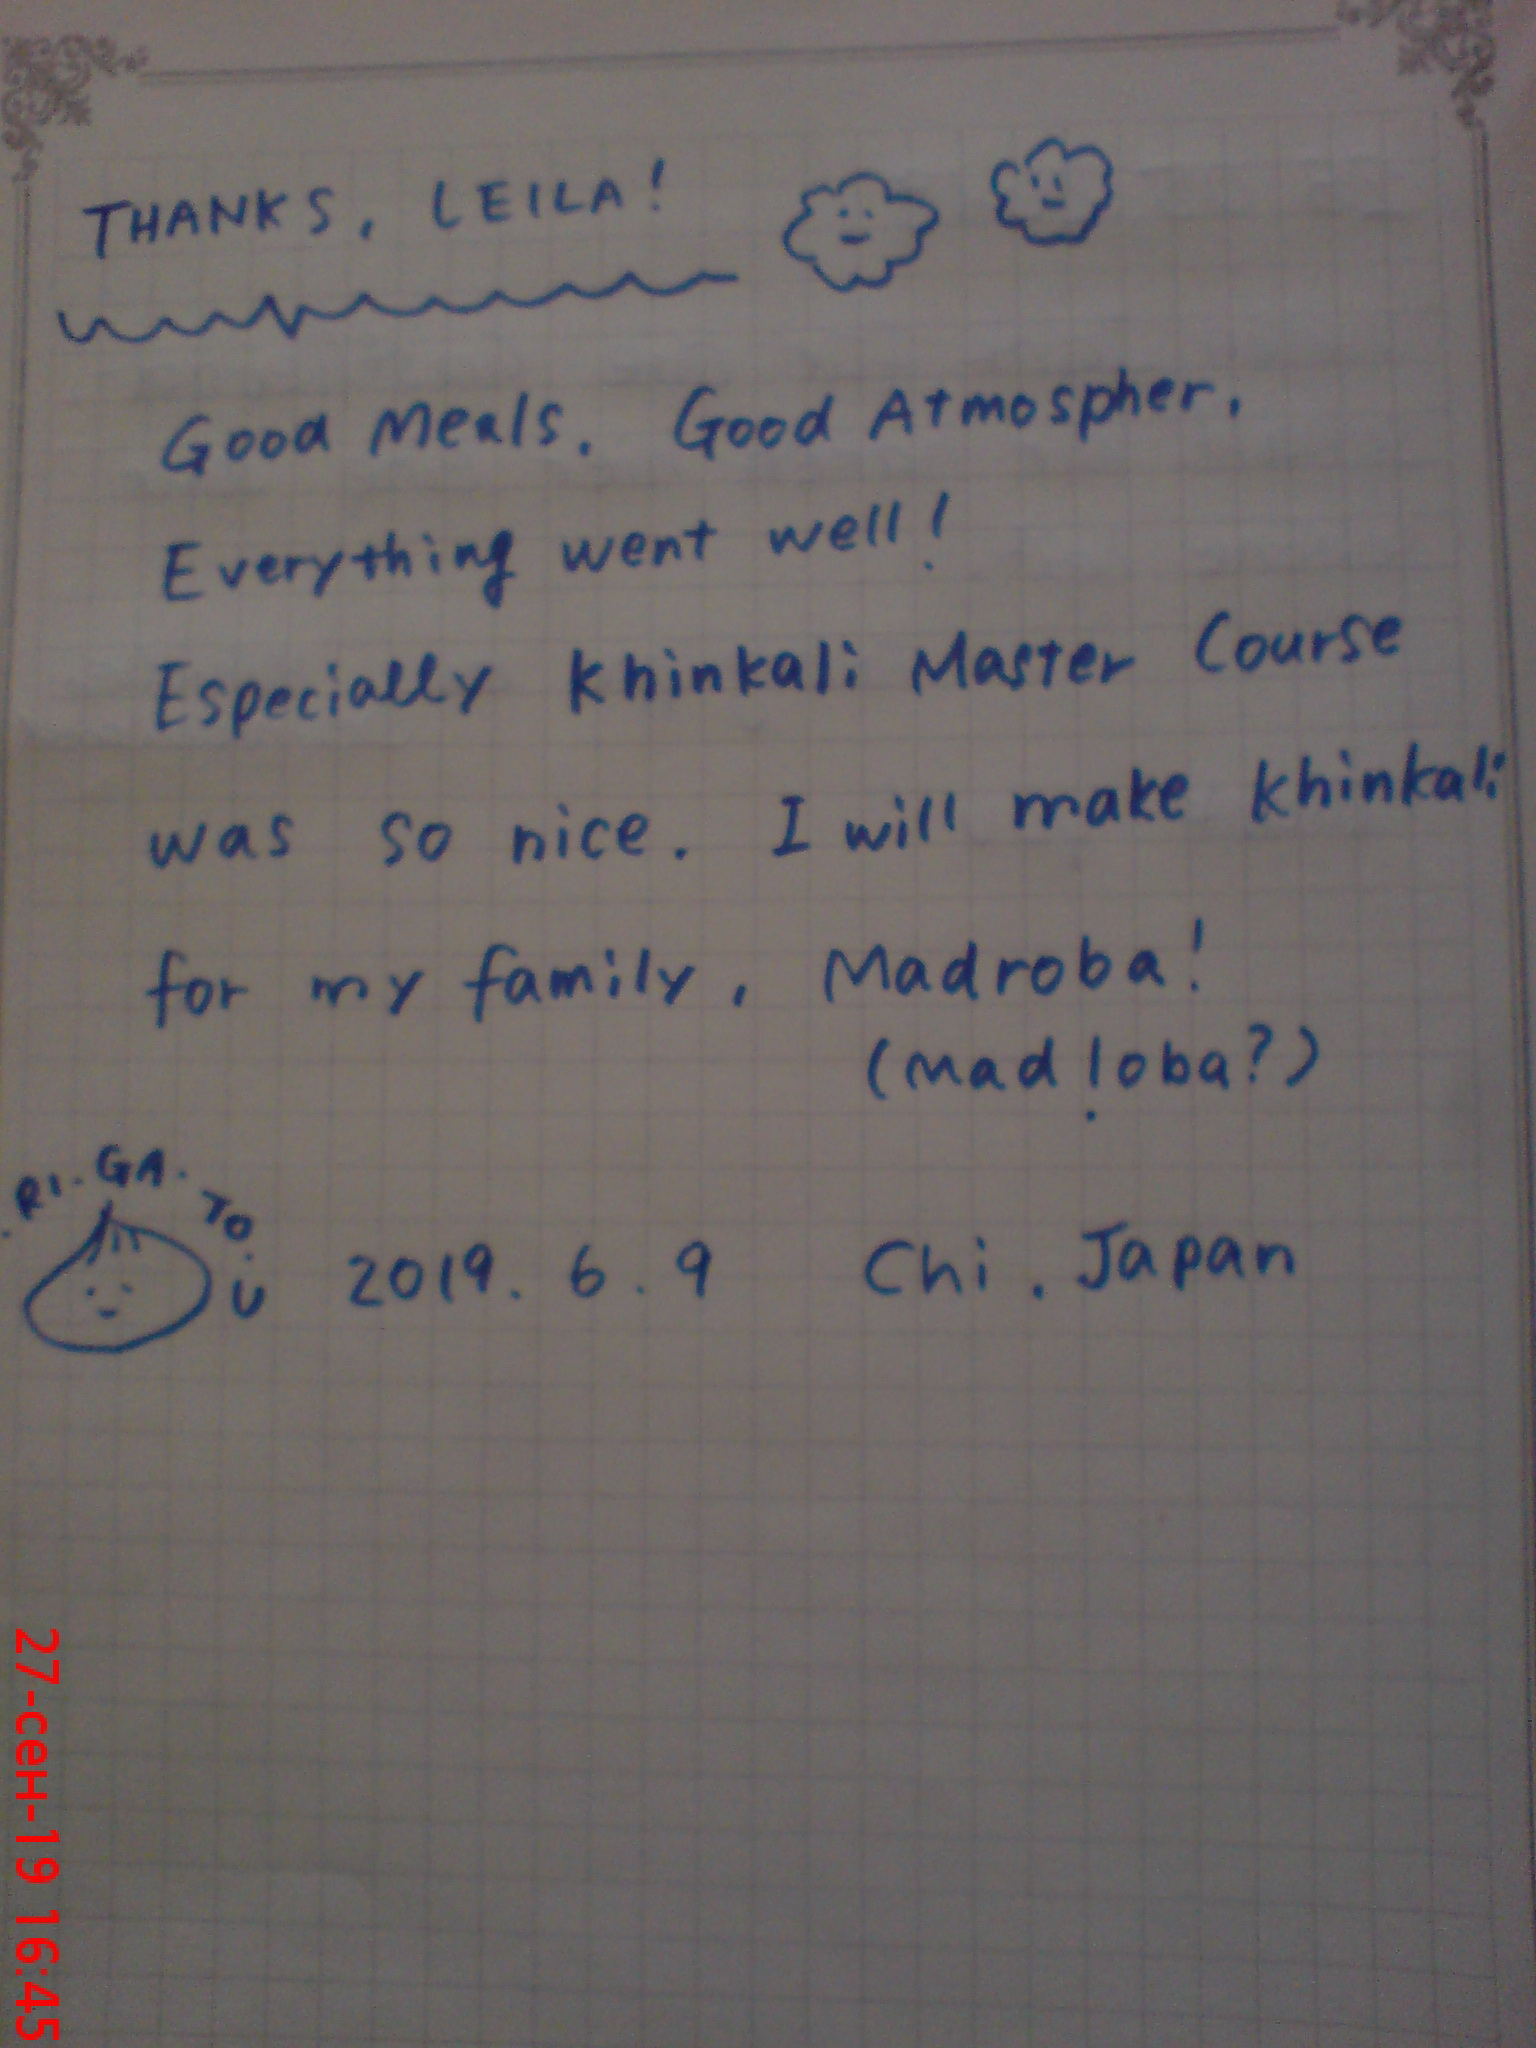 THANKS, LEILA!
Good Meals. Good Atmospher.
Everything went well!
Especially Khinkali Master Course
was so nice. I will make khinkali
for my family. Madroba!
(madloba?)
RI.GA.TO.U
2019.6.9 Chi. Japan
27-сен-19 16:45